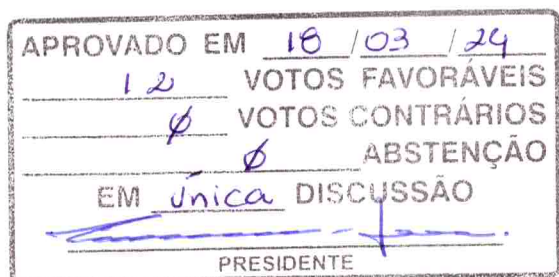 APROVADO EM 18/03/24
12 VOTOS FAVORÁVEIS
0 VOTOS CONTRÁRIOS
0 ABSTENÇÃO
EM única DISCUSSÃO
PRESIDENTE